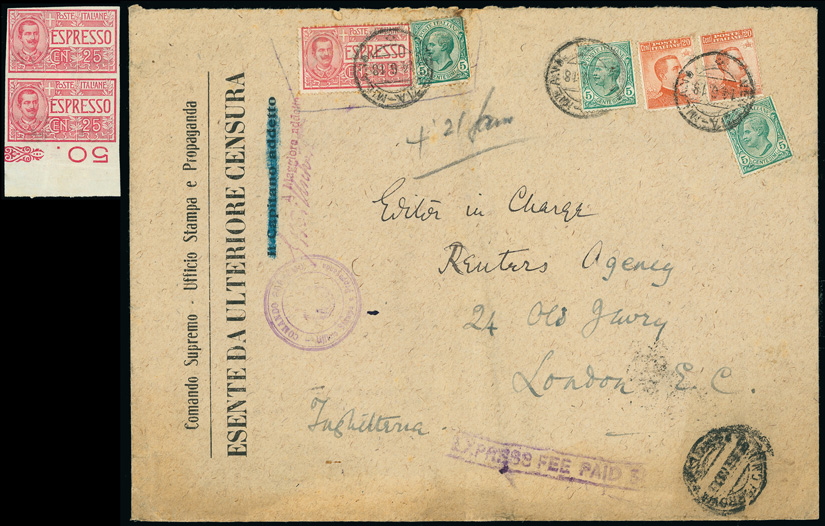 POSTE ITALIANE
ESPRESSO
CEN. 25
POSTE ITALIANE
ESPRESSO
CEN. 25
50.
POSTE ITALIANE
ESPRESSO
5
5
20
20
5
Comando Supremo - Ufficio Stampa e Propaganda
ESENTE DA ULTERIORE CENSURA
Il Capitano addetto
Il Maggiore addetto
Editor in Charge
Reuters Agency
24 Old Jewry
London E.C.
Inghilterra
EXPRESS FEE PAID 3
COMANDO